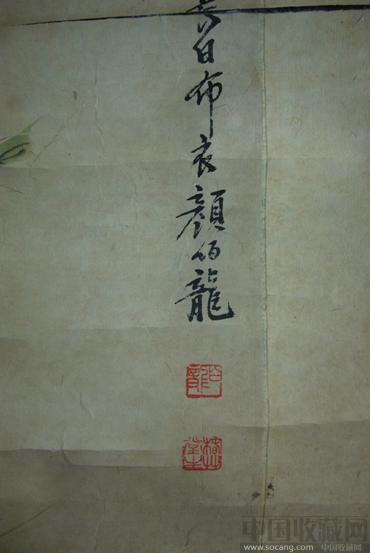 長白布衣顏伯龍
伯龍
中国收藏网
www.socang.com 中国收藏网